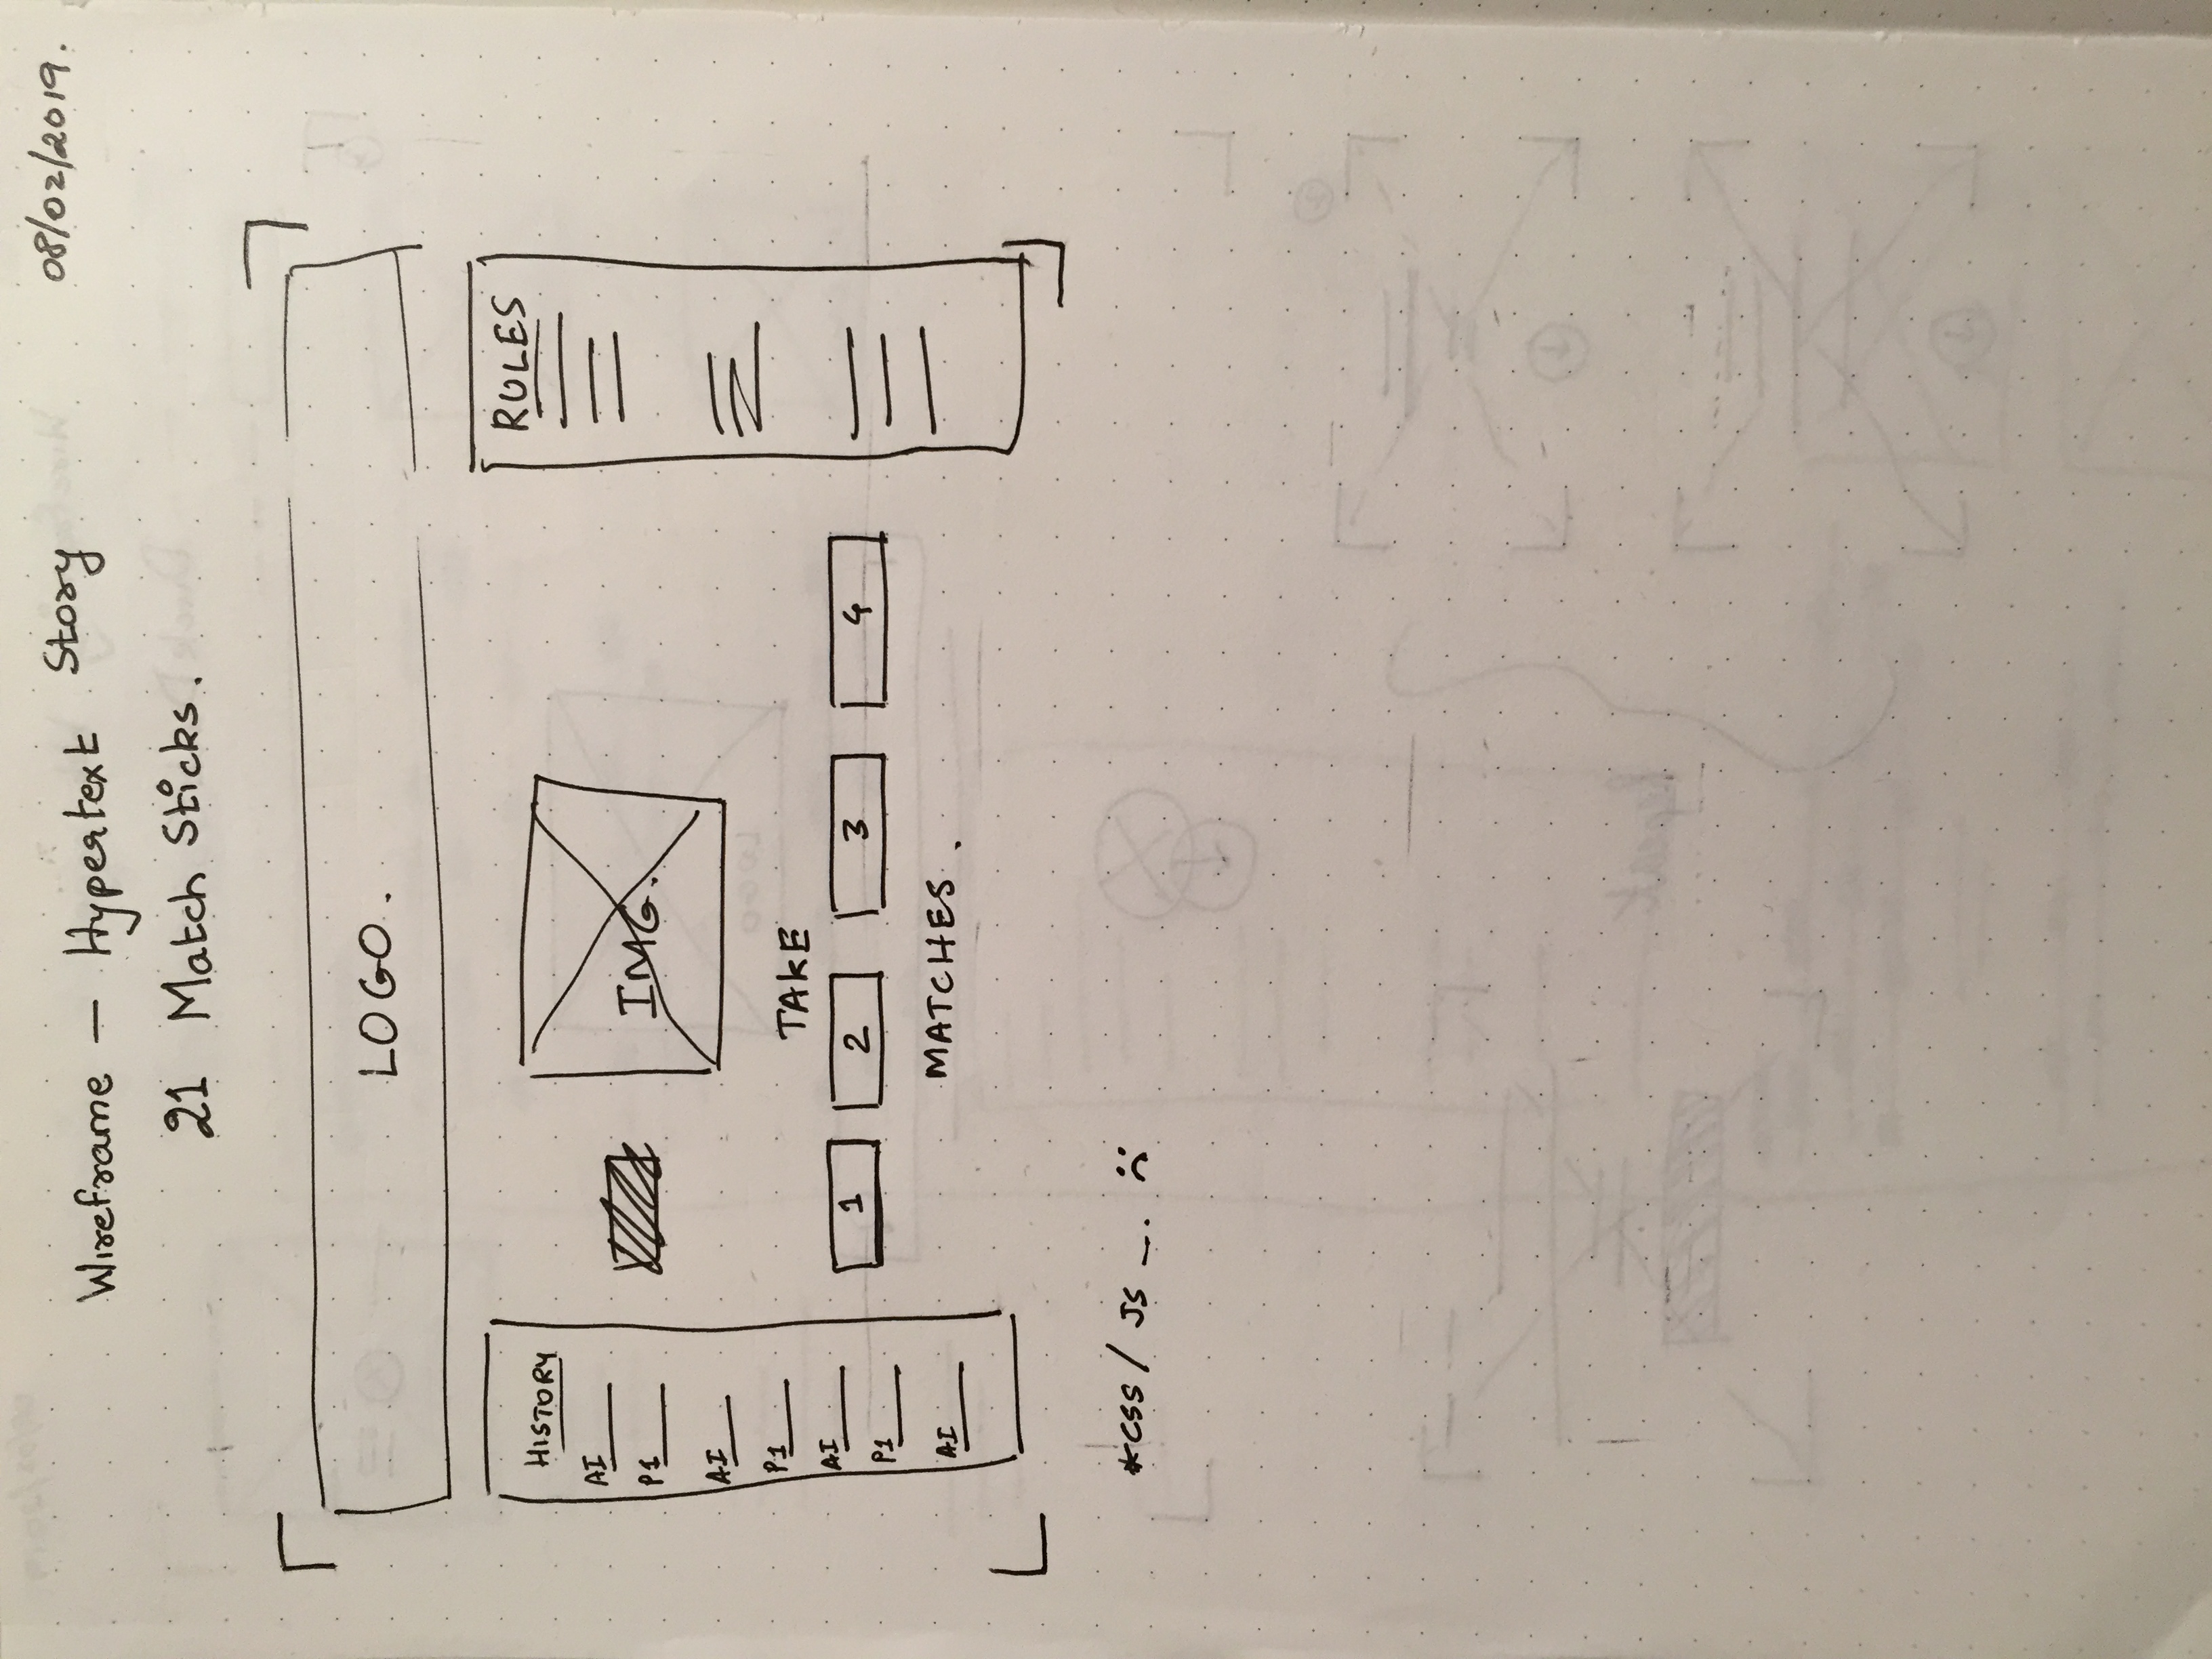 08/02/2019.
Wireframe — Hypertext Story
21 Match Sticks.
LOGO.
HISTORY
AI
P1
AI
P1
AI
P1
AI
IMG.
TAKE
1 2 3 4
MATCHES.
RULES
*CSS / JS _. ☹